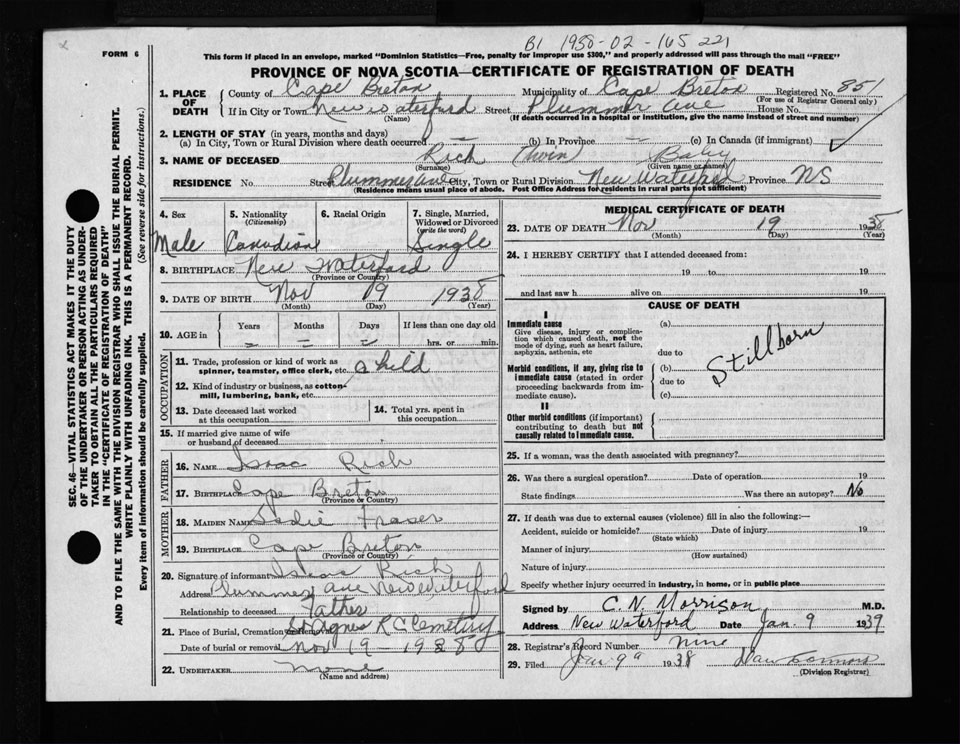 B1 1938-02-165221
FORM 6
This form if placed in an envelope, marked "Dominion Statistics—Free, penalty for improper use $300," and properly addressed will pass through the mail "FREE"
PROVINCE OF NOVA SCOTIA—CERTIFICATE OF REGISTRATION OF DEATH
1. PLACE OF DEATH County of Cape Breton Municipality of Cape Breton Registered No. 851
(For use of Registrar General only)
If in City or Town New Waterford Street Plummer Ave House No.
(Name) (If death occurred in a hospital or institution, give the name instead of street and number)
2. LENGTH OF STAY (in years, months and days)
(a) In City, Town or Rural Division where death occurred (b) In Province (c) In Canada (if immigrant)
3. NAME OF DECEASED Rich (twin) Baby
(Surname) (Given name or names)
RESIDENCE No Street Plummer Ave City, Town or Rural Division New Waterford Province NS
(Residence means usual place of abode. Post Office Address for residents in rural parts not sufficient)
4. Sex Male
5. Nationality (Citizenship) Canadian
6. Racial Origin
7. Single, Married, Widowed or Divorced (write the word) Single
8. BIRTHPLACE New Waterford
(Province or Country)
9. DATE OF BIRTH Nov 19 1938
(Month) (Day) (Year)
10. AGE in Years Months Days If less than one day old
hrs. or min.
OCCUPATION
11. Trade, profession or kind of work as spinner, teamster, office clerk, etc. child
12. Kind of industry or business, as cotton-mill, lumbering, bank, etc.
13. Date deceased last worked at this occupation
14. Total yrs. spent in this occupation
15. If married give name of wife or husband of deceased
FATHER
16. NAME Isaac Rich
17. BIRTHPLACE Cape Breton
(Province or Country)
MOTHER
18. MAIDEN NAME Sadie Fraser
19. BIRTHPLACE Cape Breton
(Province or Country)
20. Signature of informant Isaac Rich
Address Plummer Ave New Waterford
Relationship to deceased Father
21. Place of Burial, Cremation or Removal St Agnes R C Cemetery
Date of burial or removal Nov 19 - 1938
22. UNDERTAKER None
(Name and address)
MEDICAL CERTIFICATE OF DEATH
23. DATE OF DEATH Nov 19 1938
(Month) (Day) (Year)
24. I HEREBY CERTIFY that I attended deceased from:
19 to 19
and last saw h alive on 19
CAUSE OF DEATH
I
Immediate cause
Give disease, injury or complication which caused death, not the mode of dying, such as heart failure, asphyxia, asthenia, etc
(a)
due to
Morbid conditions, if any, giving rise to immediate cause (stated in order proceeding backwards from immediate cause).
(b)
due to
(c)
Stillborn
II
Other morbid conditions (if important) contributing to death but not causally related to immediate cause.
25. If a woman, was the death associated with pregnancy?
26. Was there a surgical operation? Date of operation 19
State findings Was there an autopsy? No
27. If death was due to external causes (violence) fill in also the following:—
Accident, suicide or homicide? Date of injury 19
(State which)
Manner of injury
(How sustained)
Nature of injury
Specify whether injury occurred in industry, in home, or in public place
Signed by C. N. Morrison M.D.
Address New Waterford Date Jan. 9 1939
28. Registrar's Record Number nine
29. Filed Jan 9th 1938
(Division Registrar)
SEC. 46—VITAL STATISTICS ACT MAKES IT THE DUTY
OF THE UNDERTAKER OR PERSON ACTING AS UNDER-
TAKER TO OBTAIN ALL THE PARTICULARS REQUIRED
IN THE "CERTIFICATE OF REGISTRATION OF DEATH"
AND TO FILE THE SAME WITH THE DIVISION REGISTRAR WHO SHALL ISSUE THE BURIAL PERMIT.
WRITE PLAINLY WITH UNFADING INK. THIS IS A PERMANENT RECORD.
Every item of information should be carefully supplied. (See reverse side for instructions.)